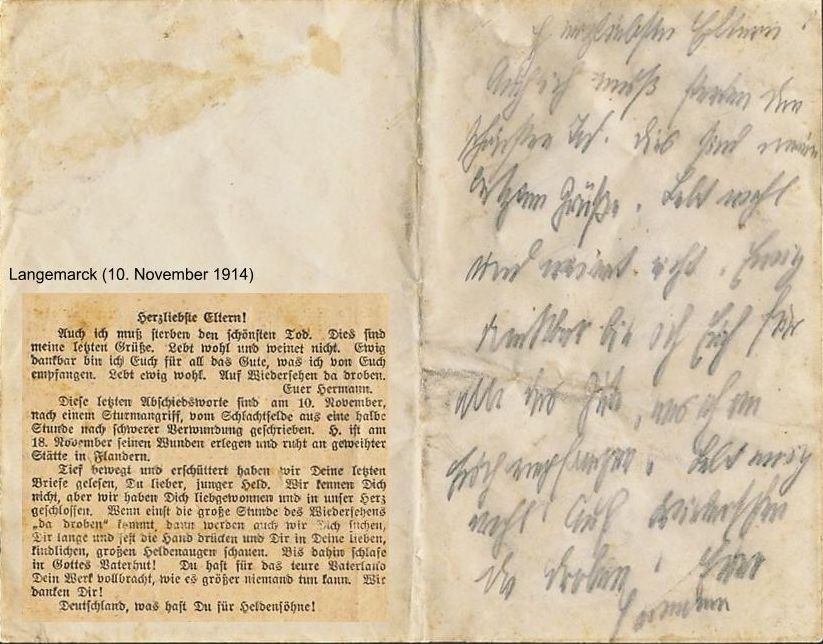 Langemarck (10. November 1914)
Herzliebste Eltern!
Auch ich muß sterben den schönsten Tod. Dies sind
meine letzten Grüße. Lebt wohl und weinet nicht. Ewig
dankbar bin ich Euch für all das Gute, was ich von Euch
empfangen. Lebt ewig wohl. Auf Wiedersehen da droben.
Euer Hermann.
Diese letzten Abschiedsworte sind am 10. November,
nach einem Sturmangriff, vom Schlachtfelde aus eine halbe
Stunde nach schwerer Verwundung geschrieben. H. ist am
18. November seinen Wunden erlegen und ruht an geweihter
Stätte in Flandern.
Tief bewegt und erschüttert haben wir Deine letzten
Briefe gelesen, Du lieber, junger Held. Wir kennen Dich
nicht, aber wir haben Dich liebgewonnen und in unser Herz
geschlossen. Wenn einst die große Stunde des Wiedersehens
„da droben" kommt, dann werden auch wir Dich suchen,
Dir lange und fest die Hand drücken und Dir in Deine lieben,
kindlichen, großen Heldenaugen schauen. Bis dahin schlafe
in Gottes Vaterhut! Du hast für das teure Vaterland
Dein Werk vollbracht, wie es größer niemand tun kann. Wir
danken Dir!
Deutschland, was hast Du für Heldensöhne!
Herzliebsten Eltern!
Auch ich muß sterben den
schönsten Tod. Dies sind meine
letzten Grüße. Lebt wohl
und weinet nicht. Ewig
dankbar bin ich Euch für
alle das Gute, was ich von
Euch empfangen. Lebt ewig
wohl! Auf Wiedersehen
da droben! Euer
Hermann